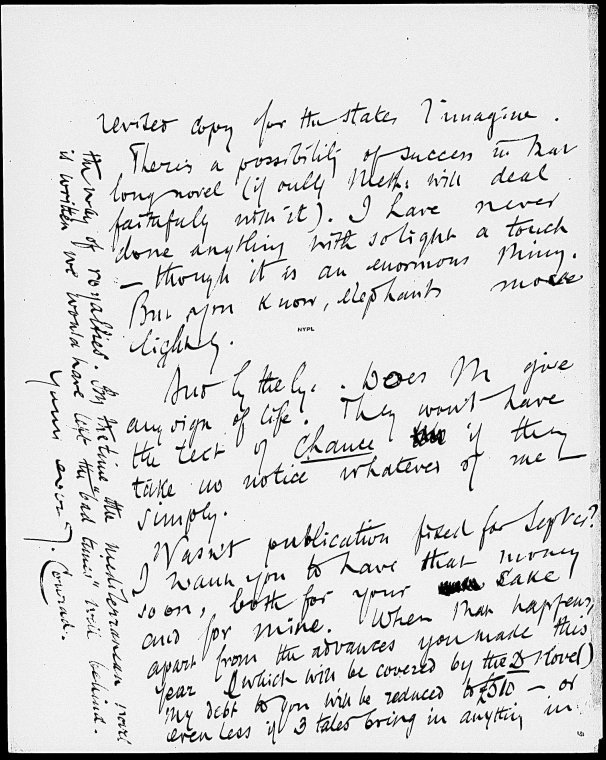 revised copy for the States I imagine.
There is a possibility of success in that
long novel (if only Meth: will deal
faithfuly with it). I have never
done anything with so light a touch
— though it is an enormous thing.
But you know, elephants move
lightly.
NYPL
And by the by. Does M give
any sign of life. They won't have
the text of Chance if they
take no notice whatever of me —
simply.
Wasn't publication fixed for Septer?
I want you to have that money
soon, both for your sake
and for mine. When that happens,
apart from the advances you made this
year (which will be covered by the D novel)
my debt to you will be reduced to £510 — or
even less if 3 tales bring in anything in
the way of royalties. By the time the mediterranean novel
is written we would have left the "bad times" well behind.
Yours ever J. Conrad.